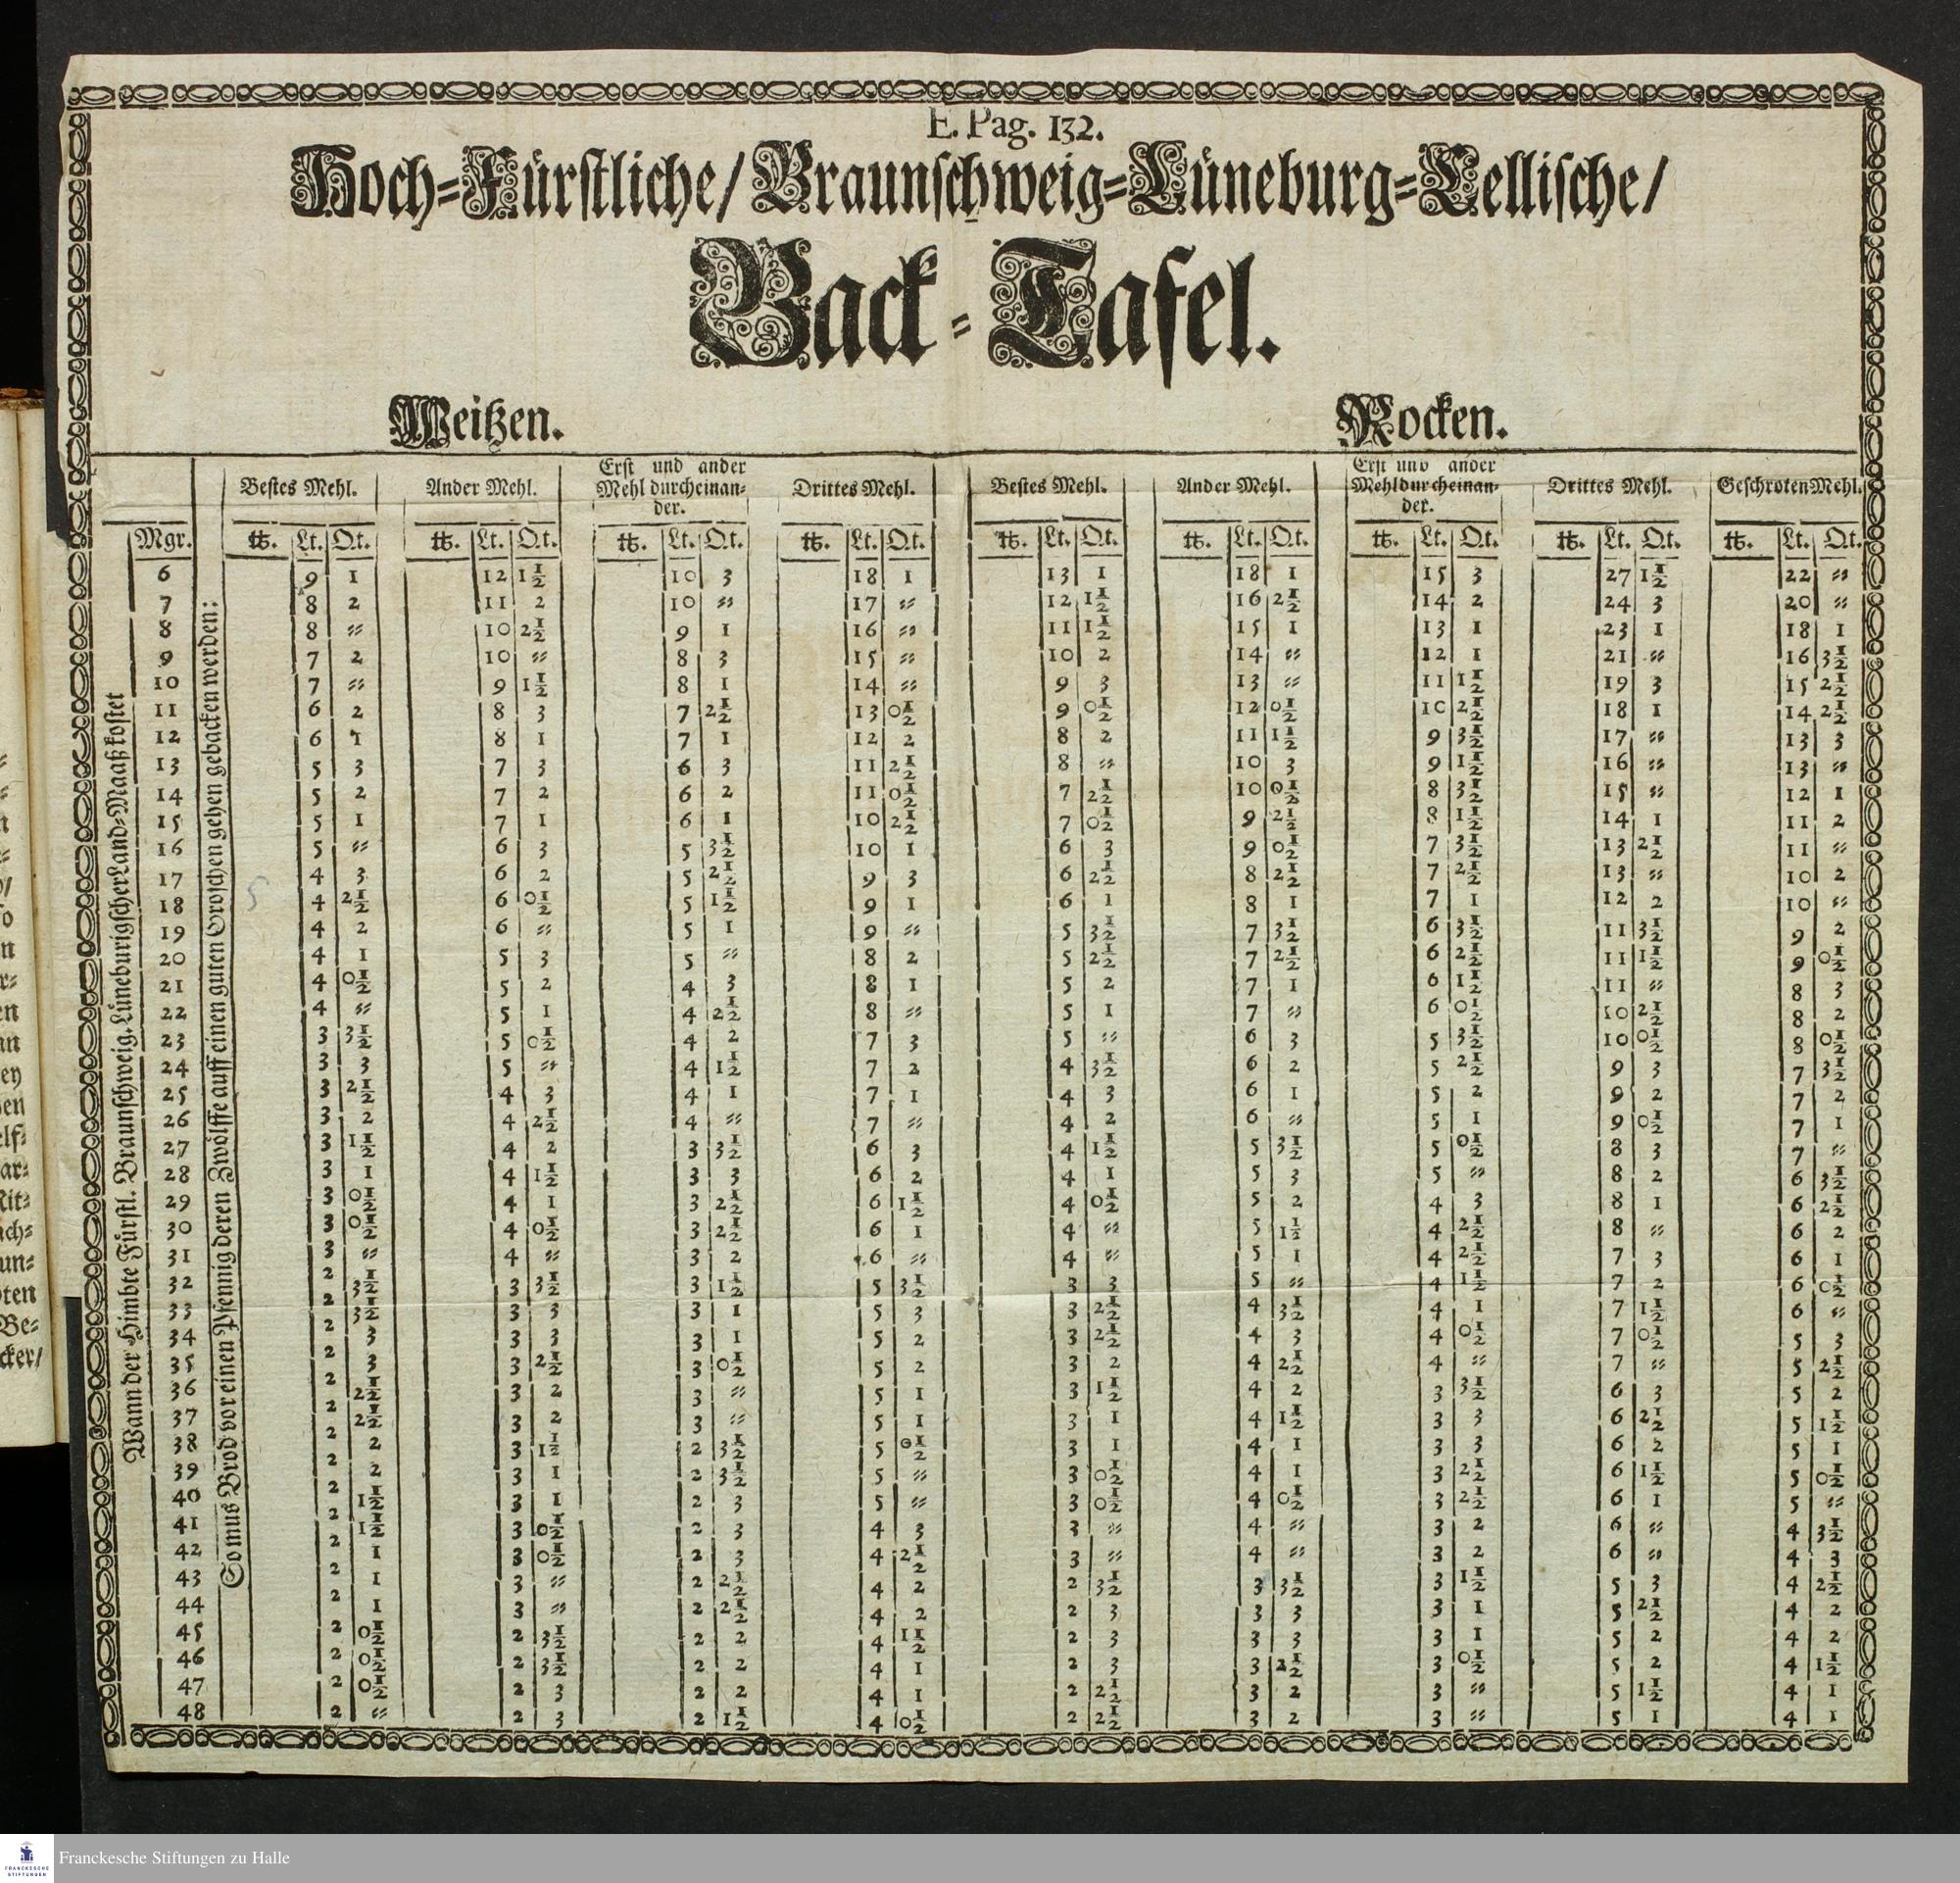 E. Pag. 132.
Hoch=Fürstliche/ Braunschweig=Lüneburg=Cellische/
Back=Tafel.
Weitzen. Rocken.
Bestes Mehl. Ander Mehl. Erst und ander Mehl durcheinan= der. Drittes Mehl. Bestes Mehl. Ander Mehl. Erst und ander Mehl durcheinan= der. Drittes Mehl. Geschroten Mehl.
Mgr. ℔. Lt. Q.t. ℔. Lt. Q.t. ℔. Lt. Q.t. ℔. Lt. Q.t. ℔. Lt. Q.t. ℔. Lt. Q.t. ℔. Lt. Q.t. ℔. Lt. Q.t. ℔. Lt. Q.t.
Wann der Himbte Fürstl. Braunschweig. Lüneburigscher Land=Maaß kostet
So mus Brod vor einen Pfennig deren Zwölffe auff einen guten Groschen gehen gebacken werden:
6 9 1 12 1½ 10 3 18 1 13 1 18 1 15 3 27 1½ 22 〃
7 8 2 11 2 10 〃 17 〃 12 1½ 16 2½ 14 2 24 3 20 〃
8 8 〃 10 2½ 9 1 16 〃 11 1½ 15 1 13 1 23 1 18 1
9 7 2 10 〃 8 3 15 〃 10 2 14 〃 12 1 21 〃 16 3½
10 7 〃 9 1½ 8 1 14 〃 9 3 13 〃 11 1½ 19 3 15 2½
11 6 2 8 3 7 2½ 13 0½ 9 0½ 12 0½ 10 2½ 18 1 14 2½
12 6 1 8 1 7 1 12 2 8 2 11 1½ 9 3½ 17 〃 13 3
13 5 3 7 3 6 3 11 2½ 8 〃 10 3 9 1½ 16 〃 13 〃
14 5 2 7 2 6 2 11 0½ 7 2½ 10 0½ 8 3½ 15 〃 12 1
15 5 1 7 1 6 1 10 2½ 7 0½ 9 2½ 8 1½ 14 1 11 2
16 5 〃 6 3 5 3½ 10 1 6 3 9 0½ 7 3½ 13 2½ 11 〃
17 4 3 6 2 5 2½ 9 3 6 2½ 8 2½ 7 2½ 13 〃 10 2
18 4 2½ 6 0½ 5 1½ 9 1 6 1 8 1 7 1 12 2 10 〃
19 4 2 6 〃 5 1 9 〃 5 3½ 7 3½ 6 3½ 11 3½ 9 2
20 4 1 5 3 5 〃 8 2 5 2½ 7 2½ 6 2½ 11 1½ 9 0½
21 4 0½ 5 2 4 3 8 1 5 2 7 1 6 1½ 11 〃 8 3
22 4 〃 5 1 4 2½ 8 〃 5 1 7 〃 6 0½ 10 2½ 8 2
23 3 3½ 5 0½ 4 2 7 3 5 〃 6 3 5 3½ 10 0½ 8 0½
24 3 3 5 〃 4 1½ 7 2 4 3½ 6 2 5 2½ 9 3 7 3½
25 3 2½ 4 3 4 1 7 1 4 3 6 1 5 2 9 2 7 2
26 3 2 4 2½ 4 〃 7 〃 4 2 6 〃 5 1 9 0½ 7 1
27 3 1½ 4 2 3 3½ 6 3 4 1½ 5 3½ 5 0½ 8 3 7 〃
28 3 1 4 1½ 3 3 6 2 4 1 5 3 5 〃 8 2 6 3½
29 3 0½ 4 1 3 2½ 6 1½ 4 0½ 5 2 4 3 8 1 6 2½
30 3 0½ 4 0½ 3 2½ 6 1 4 〃 5 1½ 4 2½ 8 〃 6 2
31 3 〃 4 〃 3 2 6 〃 4 〃 5 1 4 2½ 7 3 6 1
32 2 3½ 3 3½ 3 1½ 5 3½ 3 3 5 〃 4 1½ 7 2 6 0½
33 2 3½ 3 3 3 1 5 3 3 2½ 4 3½ 4 1 7 1½ 6 〃
34 2 3 3 3 3 1 5 2 3 2½ 4 3 4 0½ 7 0½ 5 3
35 2 3 3 2½ 3 0½ 5 2 3 2 4 2½ 4 〃 7 〃 5 2½
36 2 2½ 3 2 3 〃 5 1 3 1½ 4 2 3 3½ 6 3 5 2
37 2 2½ 3 2 3 〃 5 1 3 1 4 1½ 3 3 6 2½ 5 1½
38 2 2 3 1½ 2 3½ 5 0½ 3 1 4 1 3 3 6 2 5 1
39 2 2 3 1 2 3½ 5 〃 3 0½ 4 1 3 2½ 6 1½ 5 0½
40 2 1½ 3 1 2 3 5 〃 3 0½ 4 0½ 3 2½ 6 1 5 〃
41 2 1½ 3 0½ 2 3 4 3 3 〃 4 〃 3 2 6 〃 4 3½
42 2 1 3 0½ 2 3 4 2½ 3 〃 4 〃 3 2 6 〃 4 3
43 2 1 3 〃 2 2½ 4 2 2 3½ 3 3½ 3 1½ 5 3 4 2½
44 2 1 3 〃 2 2½ 4 2 2 3 3 3 3 1 5 2½ 4 2
45 2 0½ 2 3½ 2 2 4 1½ 2 3 3 3 3 1 5 2 4 2
46 2 0½ 2 3½ 2 2 4 1 2 3 3 2½ 3 0½ 5 2 4 1½
47 2 0½ 2 3 2 2 4 1 2 2½ 3 2 3 〃 5 1½ 4 1
48 2 〃 2 3 2 1½ 4 0½ 2 2½ 3 2 3 〃 5 1 4 1
FRANCKESCHE STIFTUNGEN
Franckesche Stiftungen zu Halle